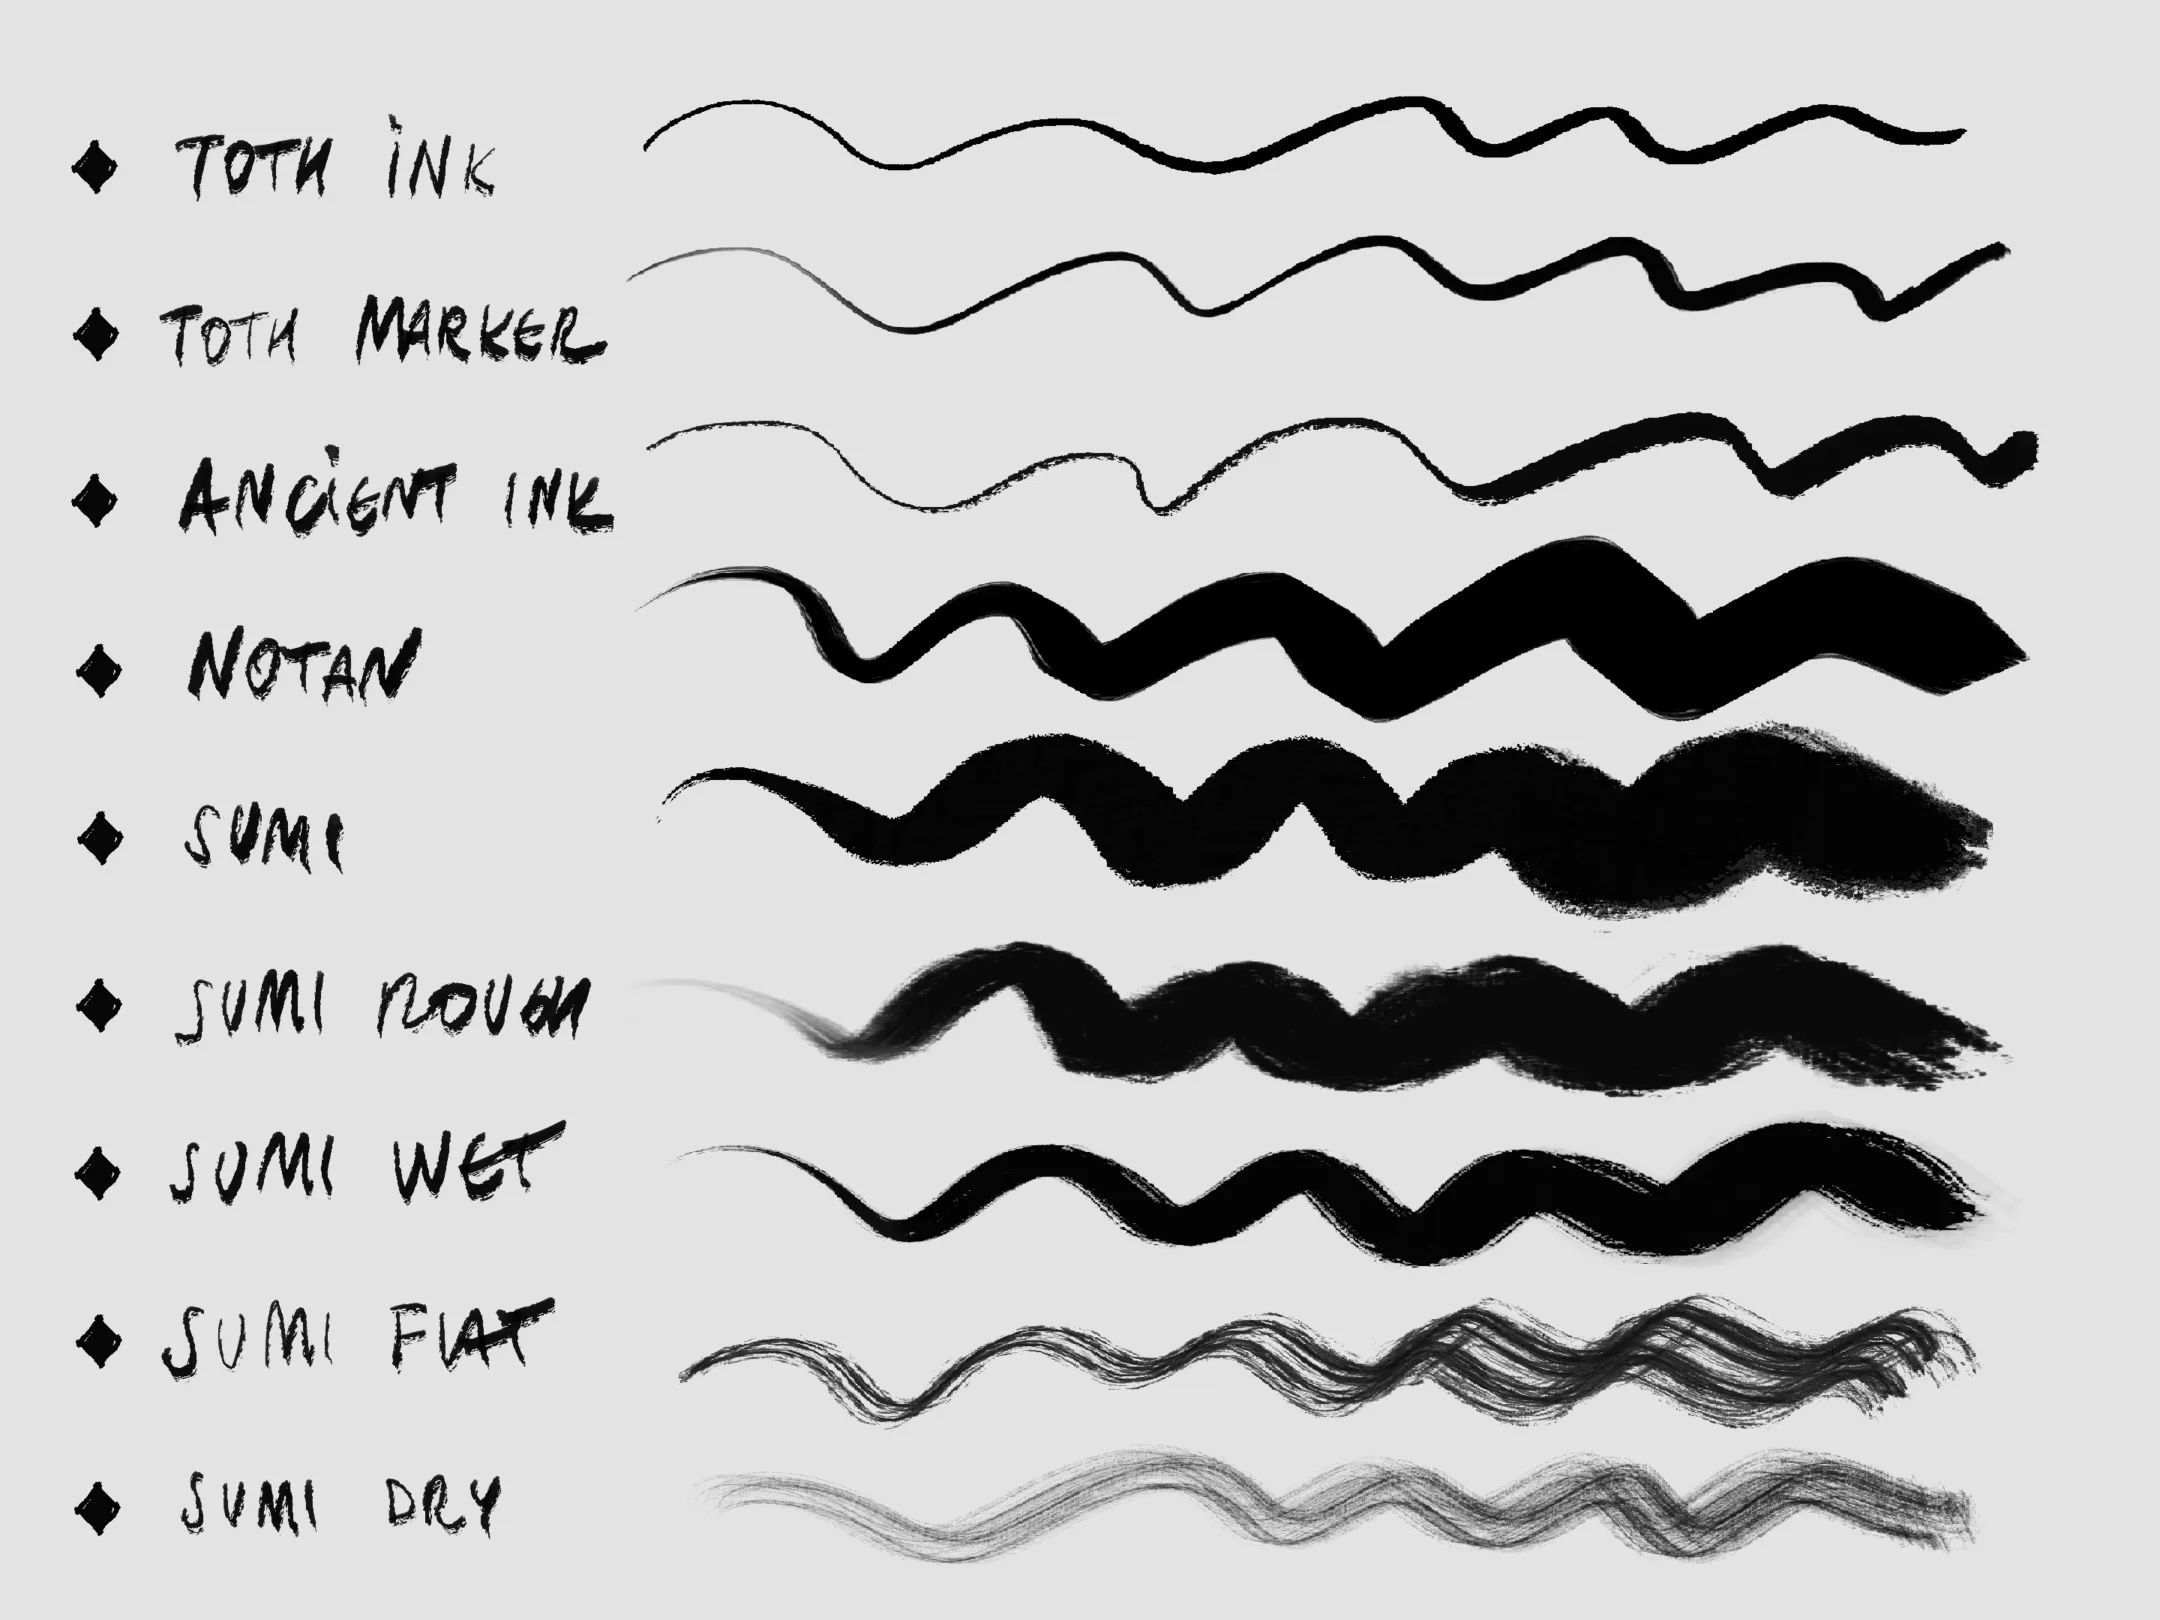 TOTH INK
TOTH MARKER
ANCIENT INK
NOTAN
SUMI
SUMI ROUGH
SUMI WET
SUMI FLAT
SUMI DRY